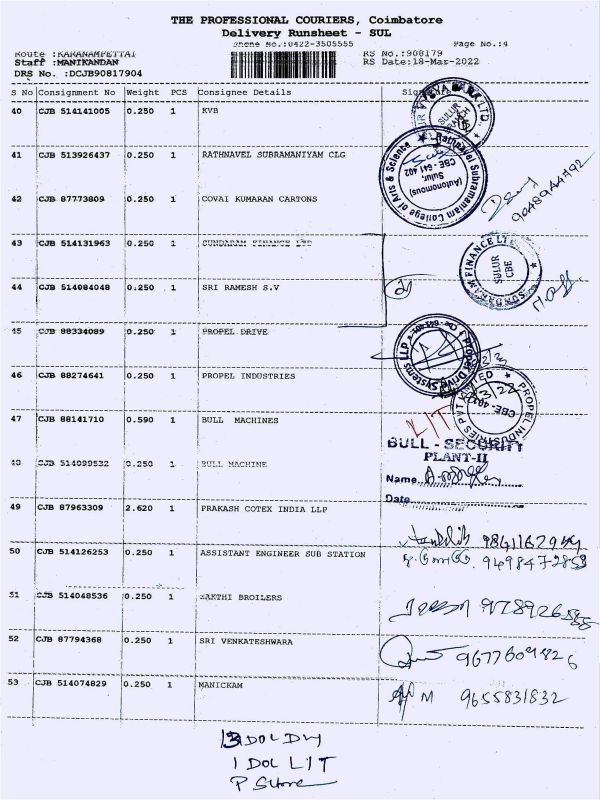 THE PROFESSIONAL COURIERS, Coimbatore
Delivery Runsheet - SUL
Phone No.:0422-3505555 Page No.:4
Route :KARANAMPETTAI RS No.:908179
Staff :MANIKANDAN RS Date:18-Mar-2022
DRS No. :DCJB90817904
S No Consignment No Weight PCS Consignee Details
40 CJB 514141005 0.250 1 KVB
41 CJB 513926437 0.250 1 RATHNAVEL SUBRAMANIYAM CLG
42 CJB 87773809 0.250 1 COVAI KUMARAN CARTONS
43 CJB 514131963 0.250 1 SUNDARAM FINANCE LTD
44 CJB 514084048 0.250 1 SRI RAMESH S.V
45 CJB 88334089 0.250 1 PROPEL DRIVE
46 CJB 88274641 0.250 1 PROPEL INDUSTRIES
47 CJB 88141710 0.590 1 BULL MACHINES
48 CJB 514099532 0.250 1 BULL MACHINE
49 CJB 87963309 2.620 1 PRAKASH COTEX INDIA LLP
50 CJB 514126253 0.250 1 ASSISTANT ENGINEER SUB STATION
51 CJB 514048536 0.250 1 SAKTHI BROILERS
52 CJB 87794368 0.250 1 SRI VENKATESHWARA
53 CJB 514074829 0.250 1 MANICKAM
SULUR
Rathnavel Subramaniam College of Arts & Science
(Autonomous)
Sulur,
CBE - 641 402
SUNDARAM FINANCE LTD
SULUR
CBE
Propel Drive Systems LLP
PROPEL INDUSTRIES PVT LIMITED
LIT
BULL - SECURITY
PLANT-II
Name
Date
9677609826
M 9655831832
1 DOL LIT